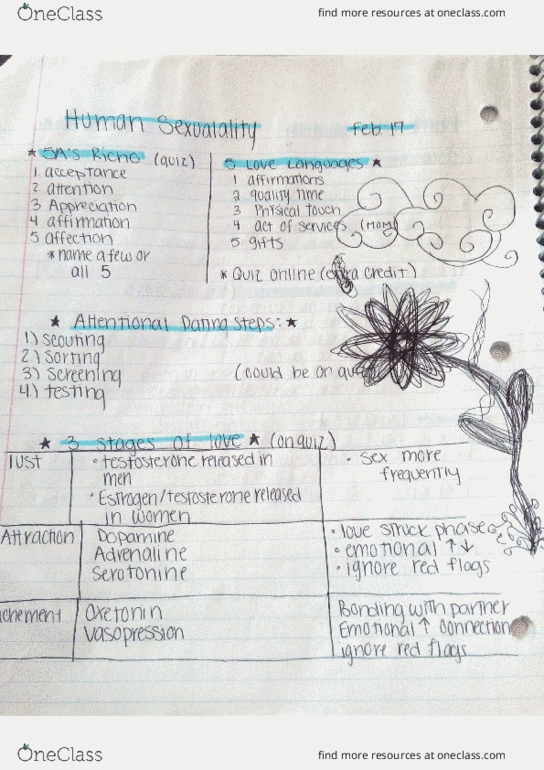 OneClass
find more resources at oneclass.com
Human Sexualality
Feb. 17
* 5A's Richo (quiz)
1 acceptance
2 attention
3 Appreciation
4 affirmation
5 affection
*name a few or
all 5
5 Love Languages *
1 affirmations
2 quality Time
3 Physical Touch
4 act of services (MOM)
5 gifts
* Quiz online (extra credit)
* Attentional Dating Steps: *
1) scouting
2) Sorting
3) Screening
4) testing
(could be on
* 3 stages of love * (on quiz)
lust
• testosterone released in
men
• Estrogen/testosterone released
in women
• Sex more
frequently
Attraction
Dopamine
Adrenaline
Serotonine
• love struck phase
• emotional ↑↓
• ignore red flags
achement
Oxetonin
Vasopression
Bonding with partner
Emotional ↑ Connection
ignore red flags
OneClass
find more resources at oneclass.com